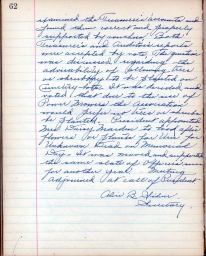 62
examined the Treasurer's accounts and
found them correct and properly
supported by vouchers. Both
Treasurer's and Auditor's reports
were accepted by vote. The question
was discussed regarding the
advisability of allowing trees
or shrubbery to be planted on
cemetery lots. It was decided and
voted that due to the use of
Power Mowers the Association
would prefer no trees or shrubs
be planted. President appointed
Daisy to look after
flowers or plants for Urn for
Unknown Dead on Memorial
Day. It was moved and supported
the same slate of officers
for another year. Meeting
adjourned at call of President
Secretary.